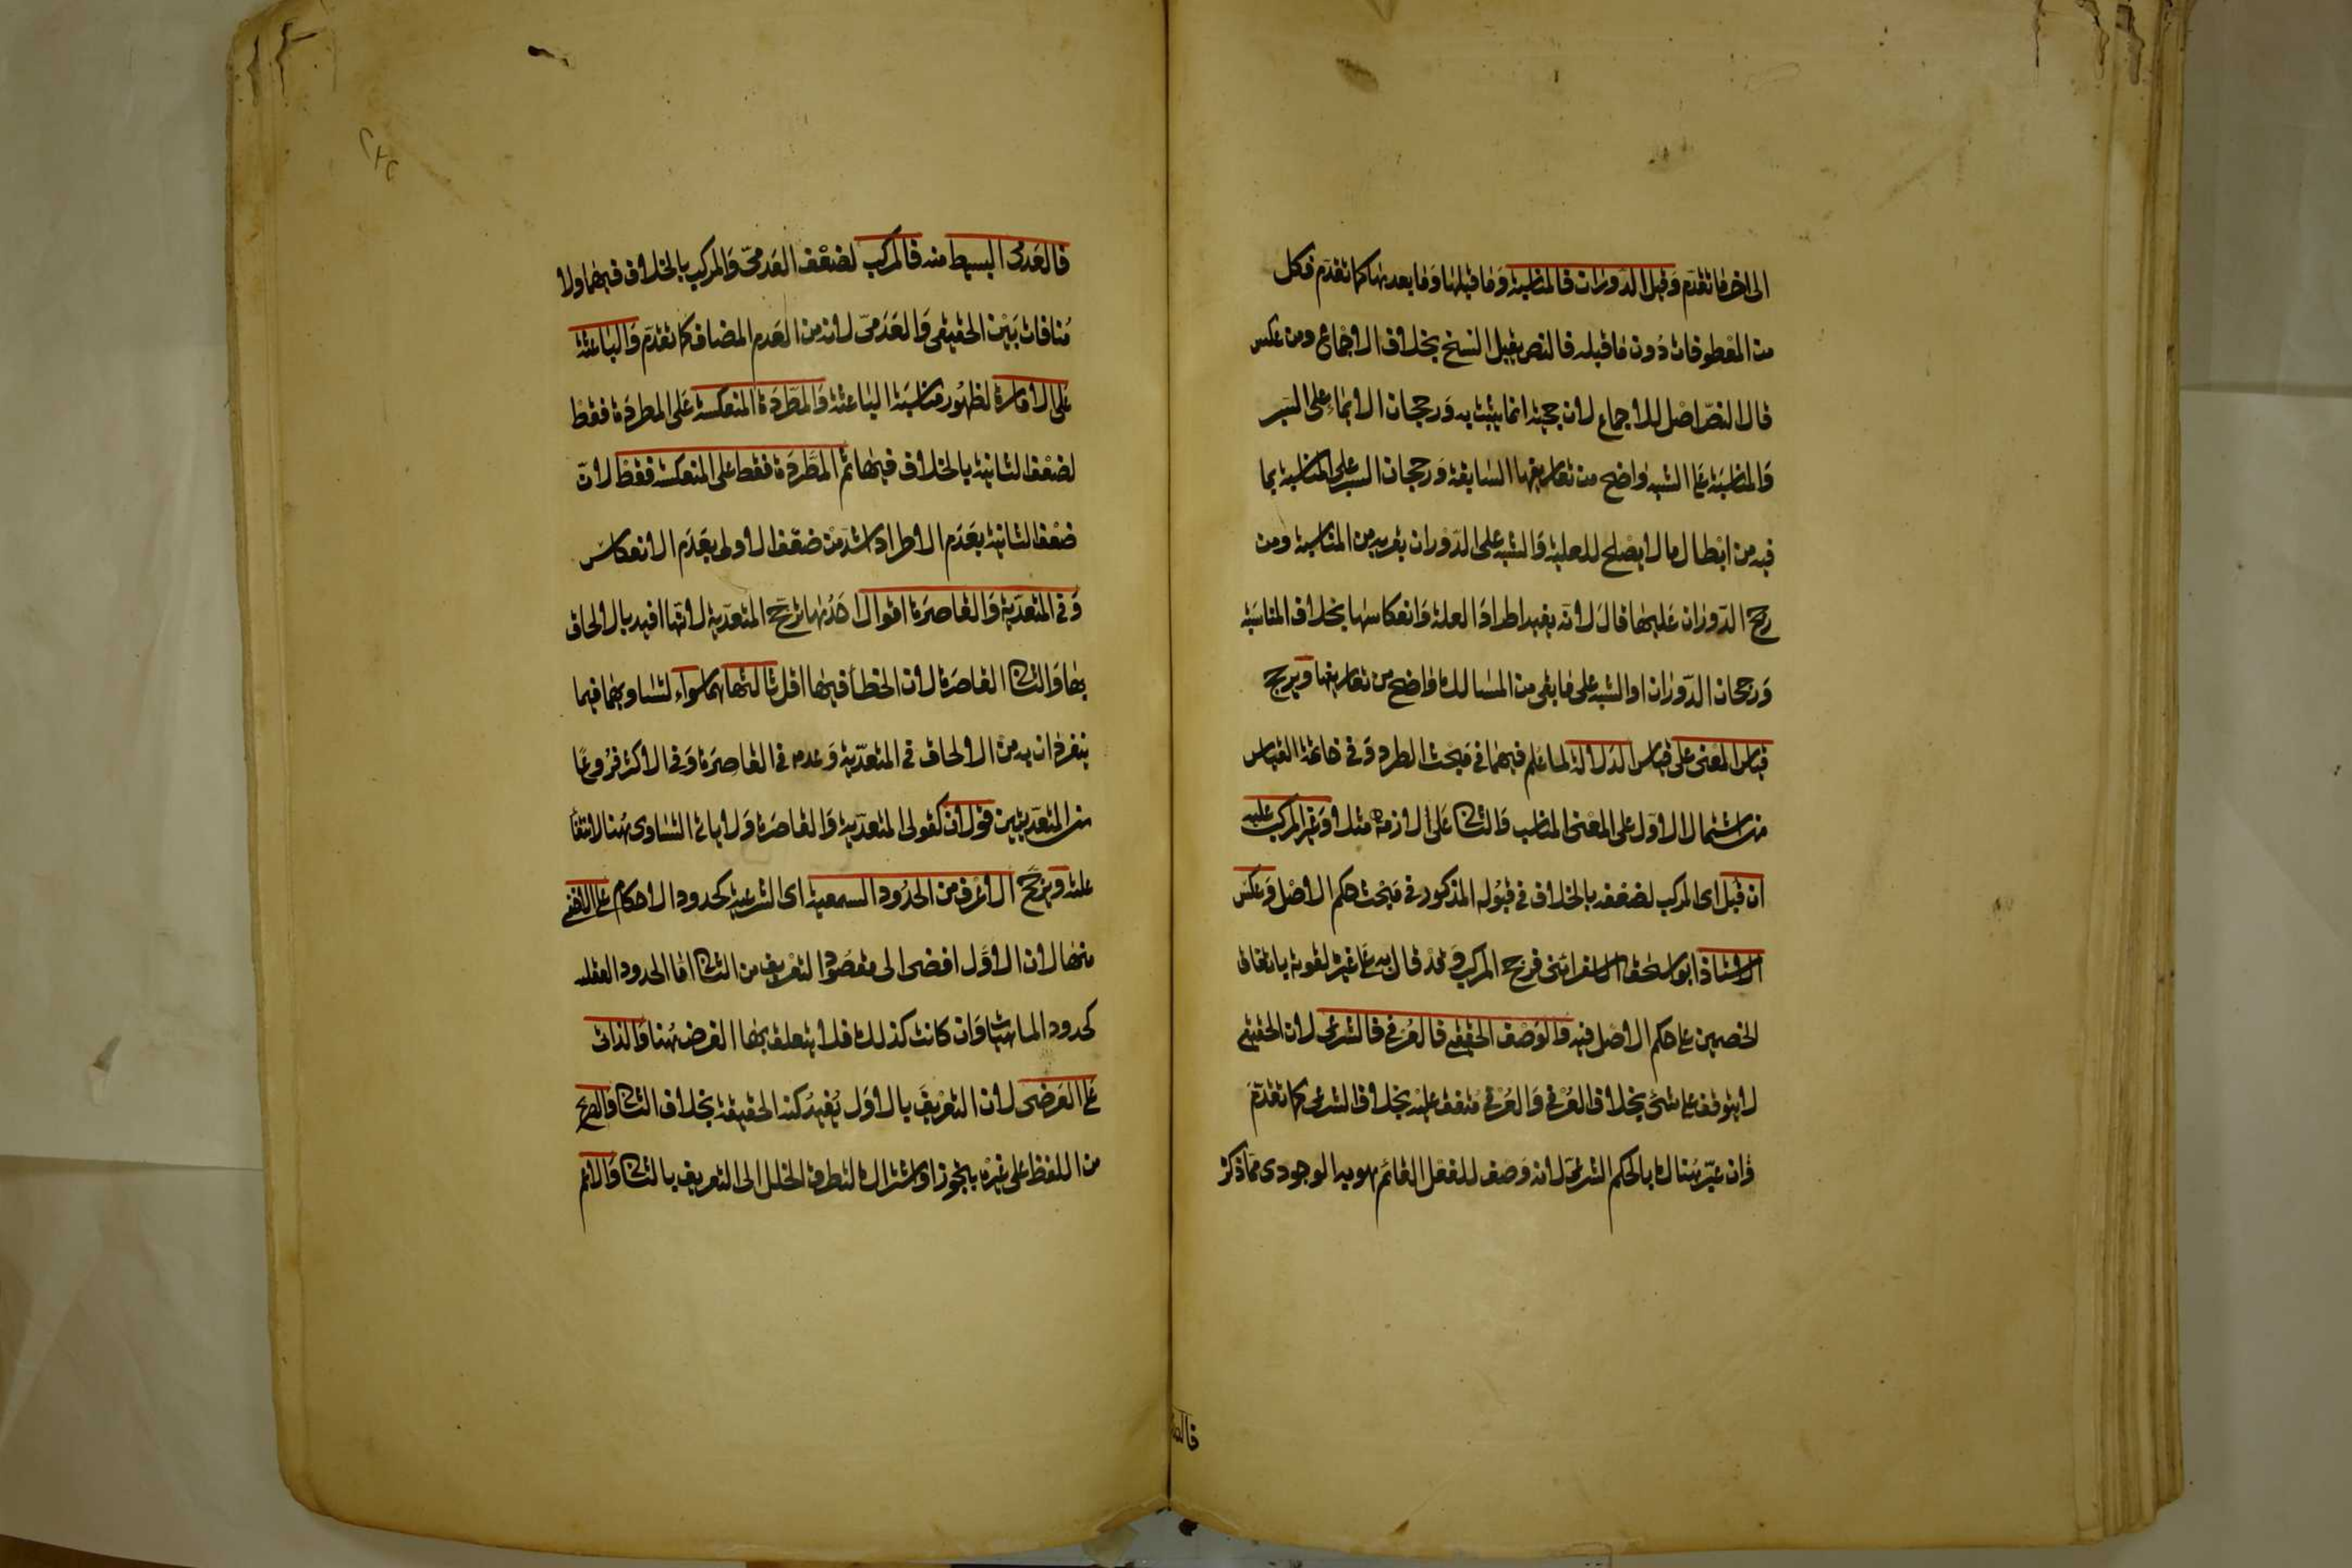 الى اخر ما تقدم وقيل الدورات فالمناسبة وما قبلها وما بعدها كما تقدم فكل
من المعطوفات دون ما قبله فالنص يقبل النسخ بخلاف الاجماع ومن عكس
قال النص اصل للاجماع لان حجيته انما يثبت به ورجحان الايماء على السبر
والمناسبة على الشبه واضح من تعاريفها السابقة ورجحان السبر على المناسبة بما
فيه من ابطال ما لا يصلح للعلية والشبه على الدوران بقربه من المناسبة ومن
رجح الدوران عليهما قال لانه يفيد اطراد العلة وانعكاسها بخلاف المناسبة
ورجحان الدوران او الشبه على ما بقى من المسالك واضح من تعاريفها ويرجح
قياس المعنى على قياس الدلالة لما علم فيهما في مبحث الطرد وفي خاتمة القياس
من اشتمال الاول على المعنى المناسب والثاني على لازمه مثلا وغير المركب عليه
ان قبل اى المركب لضعفه بالخلاف في قبوله المذكور في مبحث حكم الاصل وعكس
الاستاذ ابو اسحق الاسفرائنى فرجح المركب وقد قال به على غيره لقوته باتفاق
الخصمين على حكم الاصل فيه والوصف الحقيقي فالعرفي فالشرعى لان الحقيقي
لا يتوقف على شئ بخلاف العرفي والعرفي متفق عليه بخلاف الشرعى كما تقدم
وان عبر هناك بالحكم الشرعى لانه وصف للفعل القائم هو به الوجودى مما ذكر
فالعد
فالعدمى البسيط منه فالمركب لضعف العدمى والمركب بالخلاف فيهما ولا
منافات بين الحقيقى والعدمى لانه من العدم المضاف كما تقدم والباعثة
على الامارة لظهور مناسبة الباعثة والمطردة المنعكسة على المطردة فقط
لضعف الثانية بالخلاف فيها ثم المطردة فقط على المنعكسة فقط لان
ضعف الثانية بعدم الاطراد اشد من ضعف الاولى بعدم الانعكاس
وفي المتعدية والقاصرة اقوال احدها ترجح المتعدية لانها افيد بالالحاق
بها والثاني القاصرة لان الخطأ فيها اقل ثالثها هما سواء لتساويهما فيما
ينفردان به من الالحاق في المتعدية وعدمه في القاصرة وفي الاكثر فروعا
من المتعديتين قولان كقولى المتعدية والقاصرة ولا ياتي التساوى هنا لانتفأ
علته ويرجح الاعرف من الحدود السمعية اى الشرعية كحدود الاحكام على الاخفى
منها لان الاول افضى الى مقصود التعريف من الثاني اما الحدود العقلية
كحدود الماهيات وان كانت كذلك فلا يتعلق بها الغرض هنا والذاتى
على العرضى لان التعريف بالاول يفيد كنه الحقيقة بخلاف الثاني والصريح
من اللفظ على غيره بتجوز او اشتراك لتطرق الخلل الى التعريف بالثاني والاعم